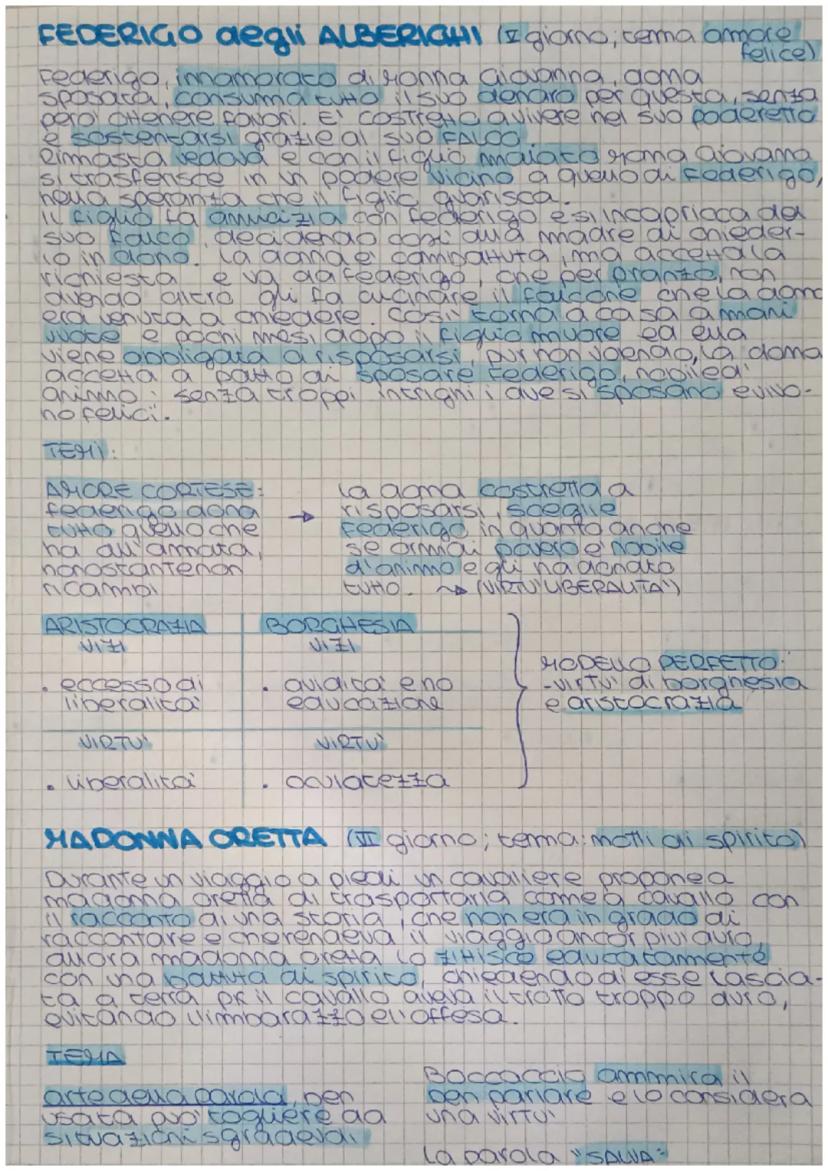 FEDERIGO degli ALBERIGHI (V giorno; tema amore
felice)
Federigo, innamorato di Monna Giovanna, donna
sposata, consuma tutto il suo denaro per questa, senza
però ottenere favori. E' costretto a vivere nel suo poderetto
e sostentarsi grazie al suo FALCO.
Rimasta vedova e con il figlio malato Monna Giovanna
si trasferisce in un podere vicino a quello di Federigo,
nella speranza che il figlio guarisca.
Il figlio fa amicizia con Federigo e si incapriocca del
suo falco, decidendo così alla madre di chieder-
lo in dono. La donna è combattuta, ma accetta la
richiesta e va da Federigo, che per pranzo, non
avendo altro gli fa cucinare il falcone che la donna
era venuta a chiedere. Così torna a casa a mani
vuote e pochi mesi dopo il figlio muore ed ella
viene obbligata a risposarsi, pur non volendo, la donna
accetta a patto di sposare Federigo, nobile d'
animo: senza troppi intrighi i due si sposano e vivo-
no felici.
TEMI:
AMORE CORTESE:
federigo dona
tutto quello che
ha all'amata,
nonostante non
ricambi
→ la donna costretta a
risposarsi, sceglie
Federigo in quanto anche
se ormai povero è nobile
d'animo e gli ha donato
tutto. → (VIRTU' LIBERALITA')
ARISTOCRAZIA
VIZI
• eccesso di
liberalità
VIRTU'
• liberalità
BORGHESIA
VIZI
• avidità e no
educazione
VIRTU'
• oculatezza
MODELLO PERFETTO:
-virtù di borghesia
e aristocrazia
MADONNA ORETTA (VI giorno; tema: motti di spirito)
Durante un viaggio a piedi un cavaliere propone a
madonna oretta di trasportarla come a cavallo con
il racconto di una storia, che non era in grado di
raccontare e che rendeva il viaggio ancor più duro,
allora madonna oretta lo zittisce educatamente
con una battuta di spirito, chiedendo di esse lascia-
ta a terra pk il cavallo aveva il trotto troppo duro,
evitando l'imbarazzo e l'offesa.
TEMA
arte della parola, ben
usata può togliere da
situazioni sgradevoli
Boccaccio ammira il
ben parlare e lo considera
una virtù
la parola "SALVA"